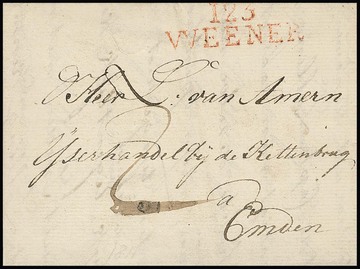 123
WEENER
d'Heer L: van Amern
Yserhandel bij de Kettenbrug
a
Emden